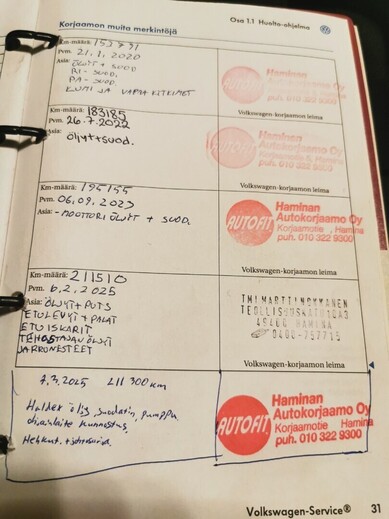 Korjaamon muita merkintöjä
Osa 1.1 Huolto-ohjelma
Km-määrä: 153731
Pvm. 21.1.2020
Asia: ÖLJYT + SUOD.
RI-SUOD.
RA-SUOD.
KUMI JA VARAA KITKIMET
Haminan
Autokorjaamo Oy
Korjaamotie 5, Hamina
puh. 010 322 9300
Volkswagen-korjaamon leima
Km-määrä: 183185
Pvm. 26.7.2022
Asia: Öljyt+suod.
AUTOFIT
Haminan
Autokorjaamo Oy
Korjaamotie 5, Hamina
puh. 010 322 9300
Volkswagen-korjaamon leima
Km-määrä: 195155
Pvm. 06.09.2023
Asia: -MOOTTORI ÖLJYT + SUOD.
AUTOFIT
Haminan
Autokorjaamo Oy
Korjaamotie , Hamina
puh. 010 322 9300
Volkswagen-korjaamon leima
Km-määrä: 211510
Pvm. 6.2.2025
Asia: ÖLJYT + PUTS
ETULEVYT + PALAT
ETUISKARIT
TEHOSTAJAN ÖLJYT
JARRUNESTEET
TMI MARTTI
49400 HAMINA
0400-757715
Volkswagen-korjaamon leima
7.3.2025 211300 km
Haldex öljy, suodatin, pumppu
Hehkut.
AUTOFIT
Haminan
Autokorjaamo Oy
Korjaamotie Hamina
puh. 010 322 9300
Volkswagen-Service® 31